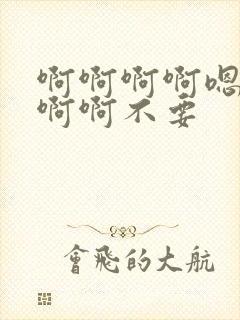 啊啊啊啊嗯
啊啊不要
會飛的大航